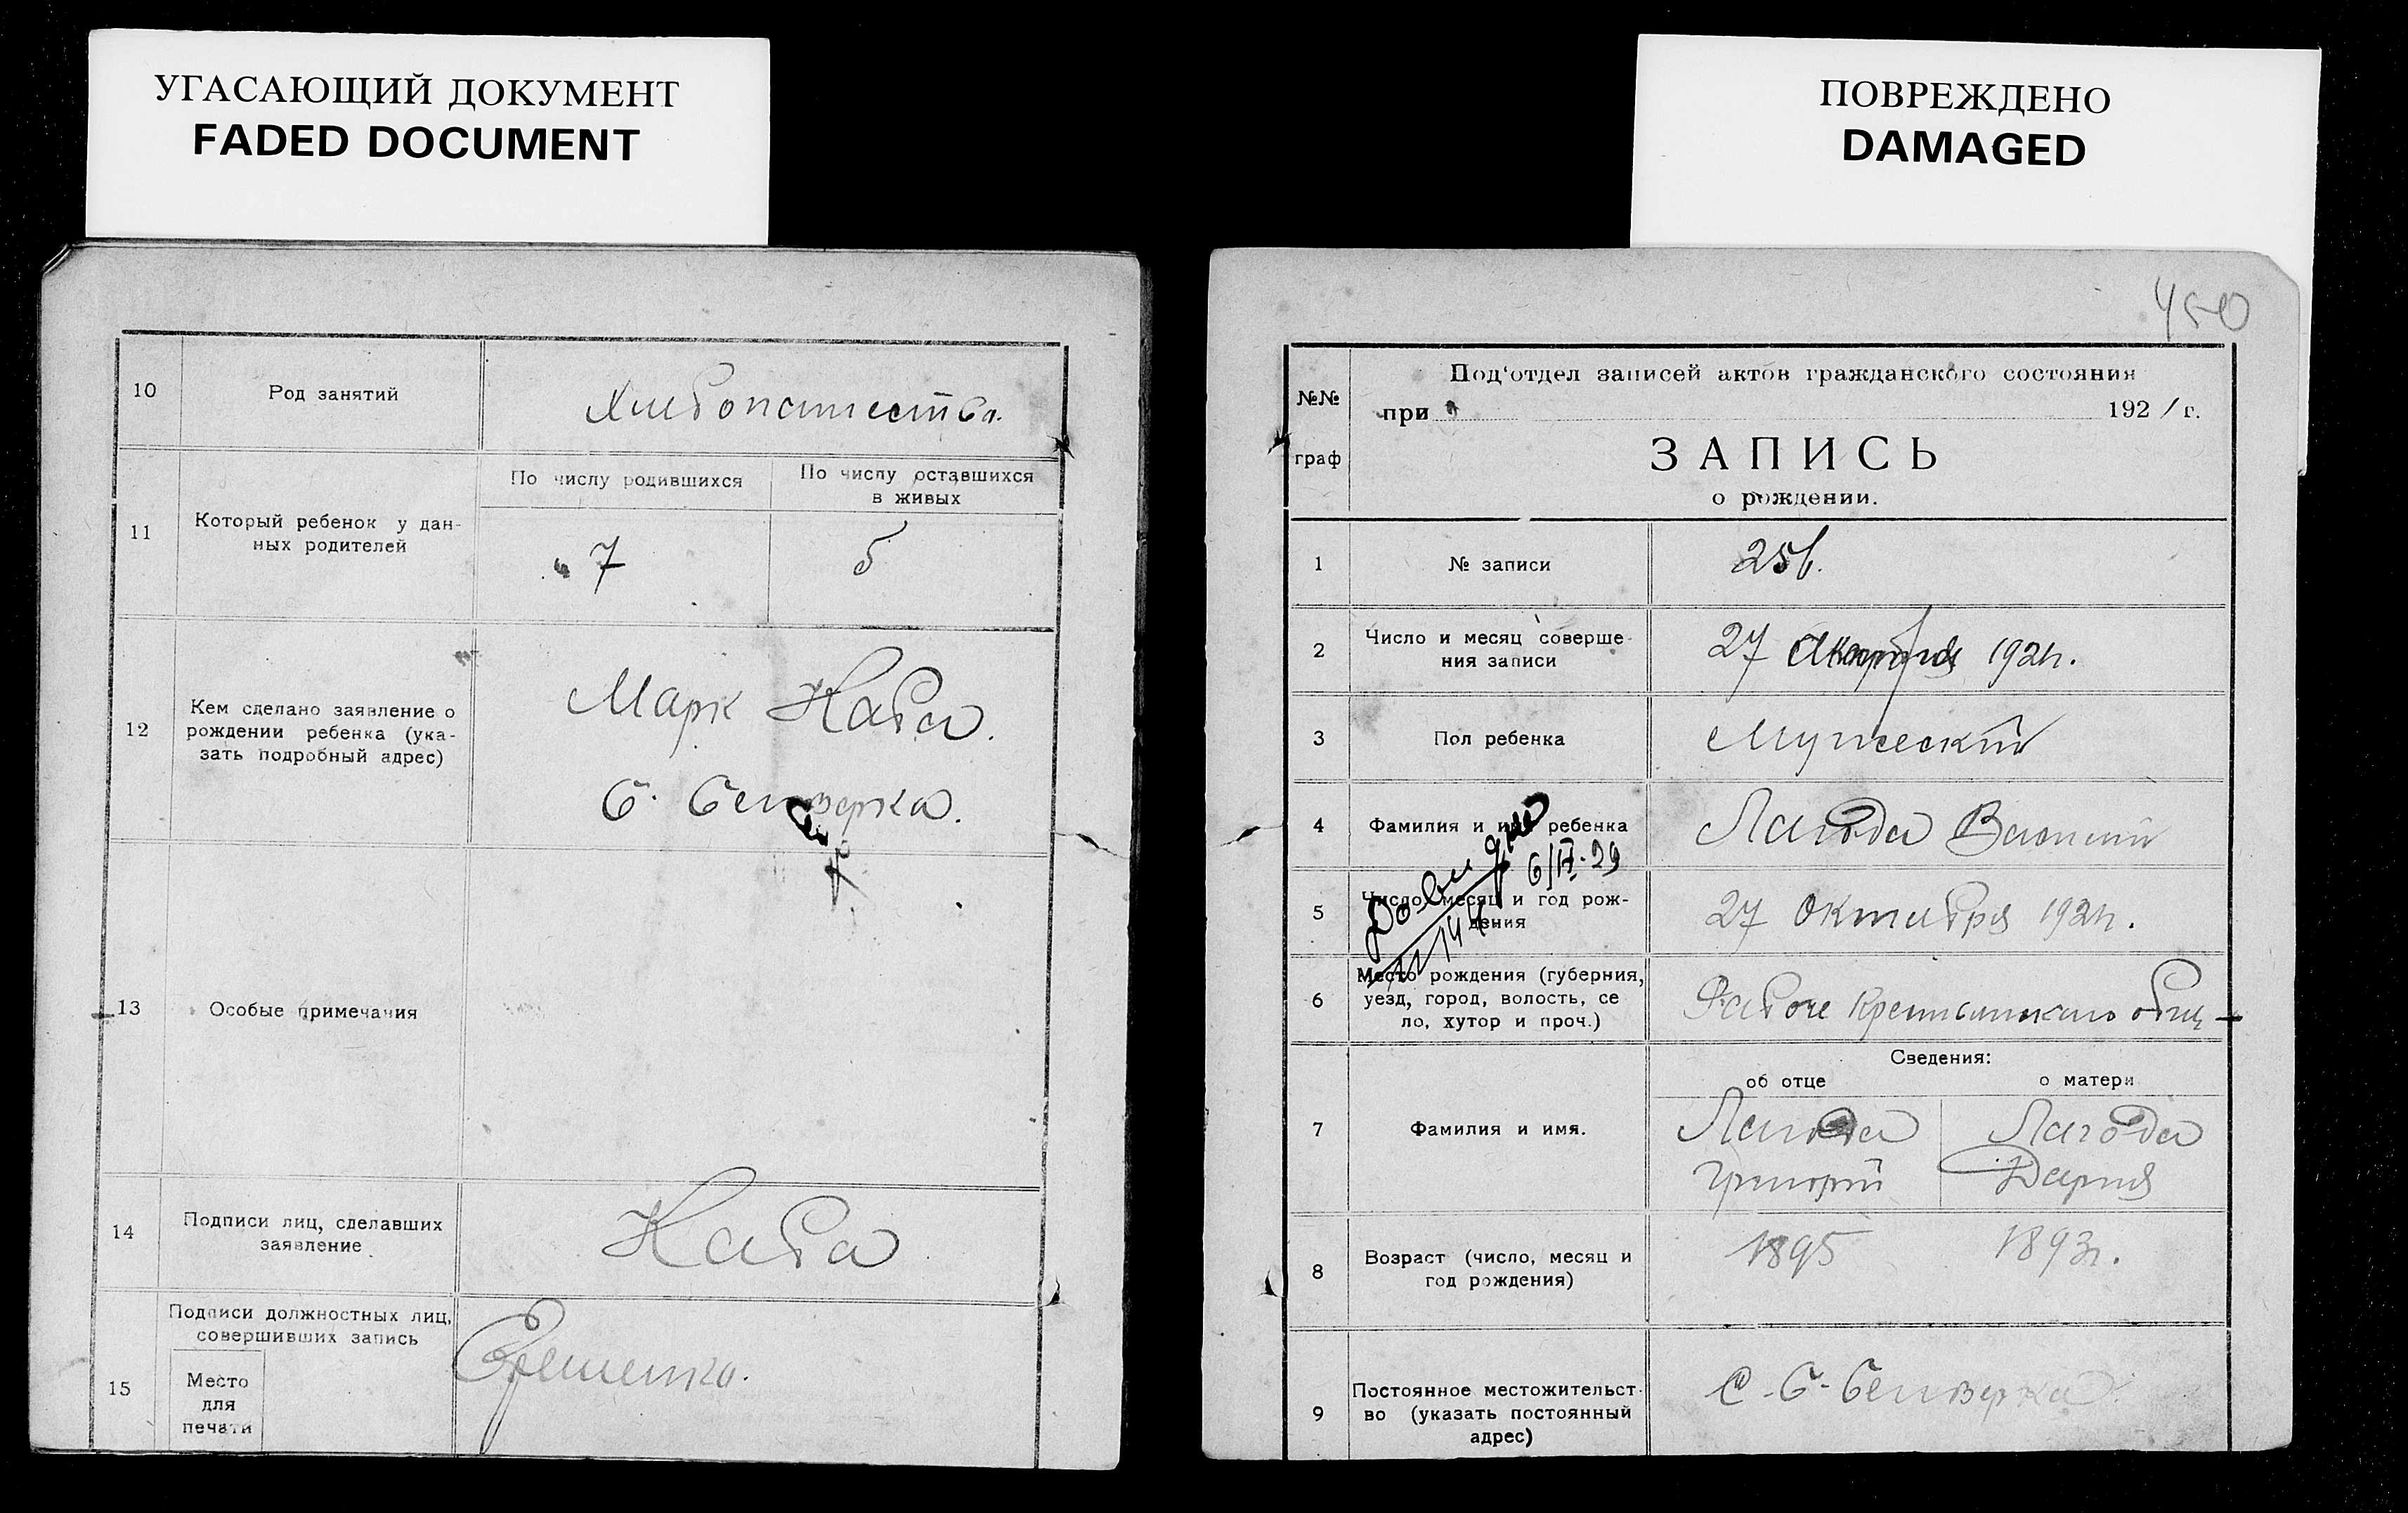 УГАСАЮЩИЙ ДОКУМЕНТ
FADED DOCUMENT
10
Род занятий
11
Который ребенок у дан-
ных родителей
По числу родившихся
По числу оставшихся
в живых
7
5
12
Кем сделано заявление о
рождении ребенка (ука-
зать подробный адрес)
Марк
13
Особые примечания
14
Подписи лиц, сделавших
заявление
15
Подписи должностных лиц,
совершивших запись
Место
для
печати
ПОВРЕЖДЕНО
DAMAGED
450
№№
граф
Под'отдел записей актов гражданского состояния
при
192 1 г.
ЗАПИСЬ
о рождении.
1
№ записи
256.
2
Число и месяц соверше-
ния записи
27 1921г.
3
Пол ребенка
4
Фамилия и имя ребенка
Лагода
6/II-29
5
Число, месяц и год рож-
дения
27 октября 1921г.
6
Место рождения (губерния,
уезд, город, волость, се
ло, хутор и проч.)
Сведения:
об отце
о матери
7
Фамилия и имя.
Лагода
Григорий
Лагода
Дария
8
Возраст (число, месяц и
год рождения)
1895
1893г.
9
Постоянное местожительст-
во (указать постоянный
адрес)